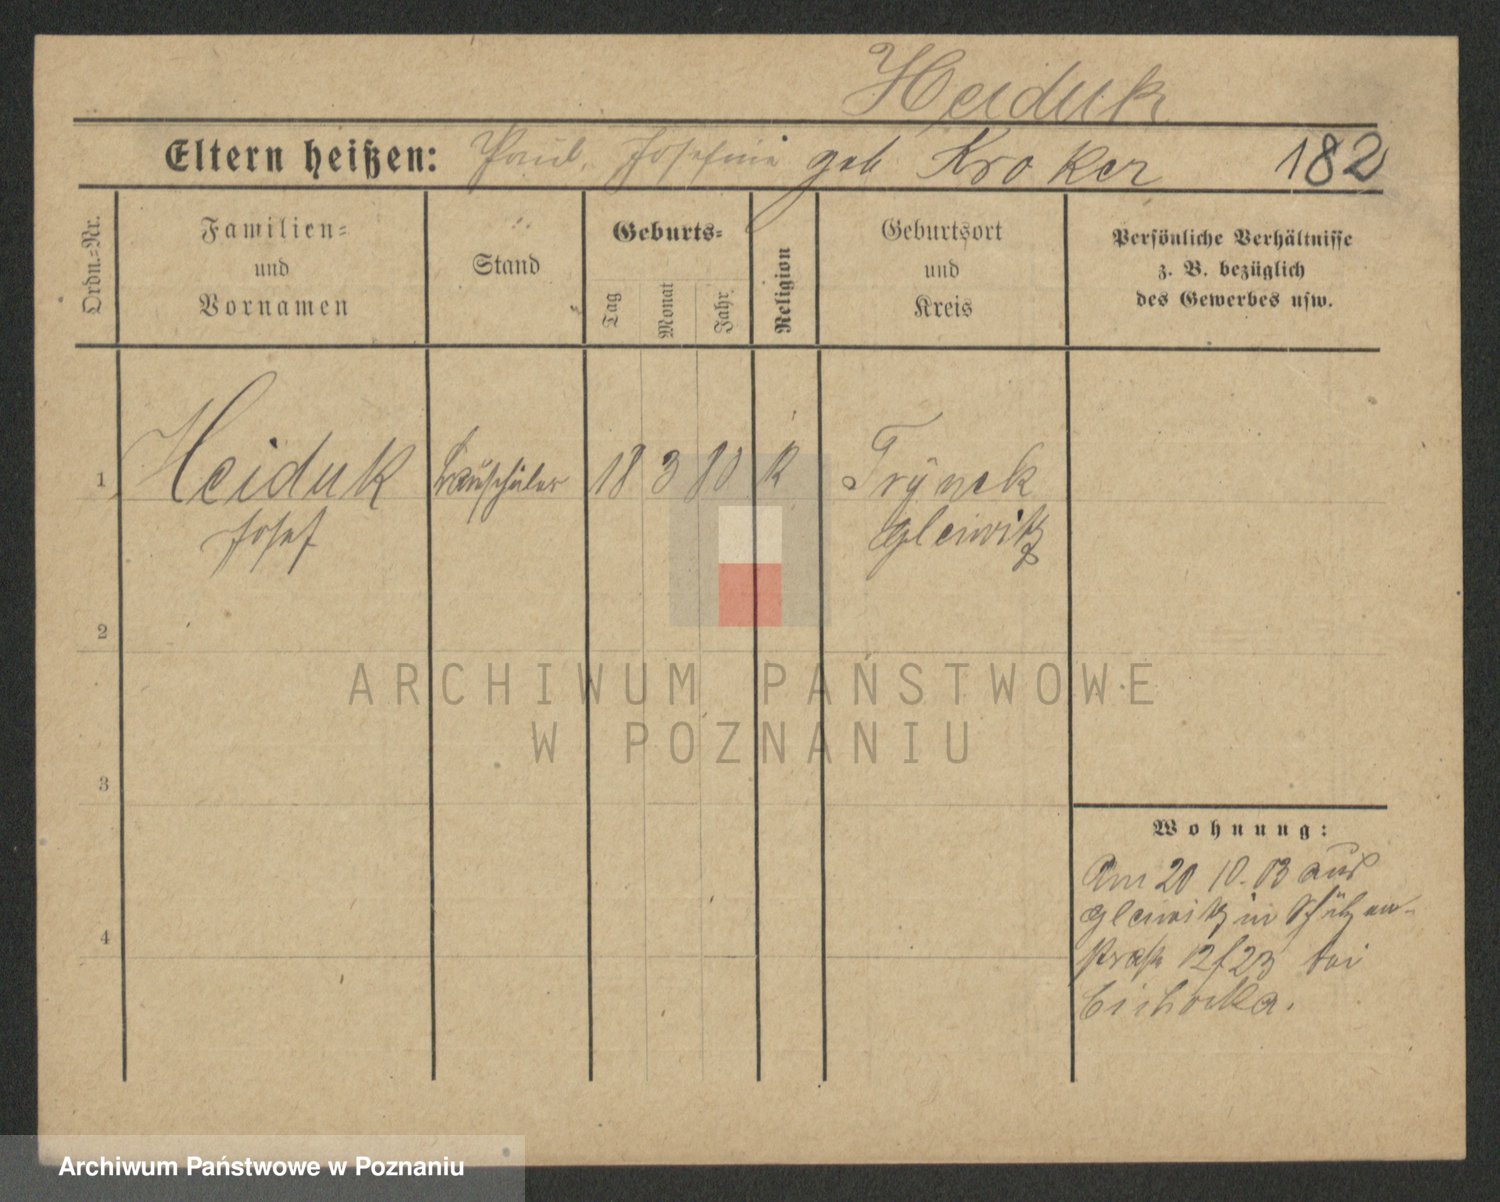 Heiduk
Eltern heißen: Paul, Josefine geb Kroker 182
Ordn.=Nr.
Familien=
und
Vornamen
Stand
Geburts=
Tag
Monat
Jahr
Religion
Geburtsort
und
Kreis
Persönliche Verhältnisse
z. B. bezüglich
des Gewerbes usw.
1 Heiduk Bauschüler 18 3 80 K Trynek
Josef Gleiwitz
2
3
4
Wohnung:
Am 20 10. 03 aus
Gleiwitz in Schützen-
straße 23 bei
Cichocka.
ARCHIWUM PAŃSTWOWE
W POZNANIU
Archiwum Państwowe w Poznaniu